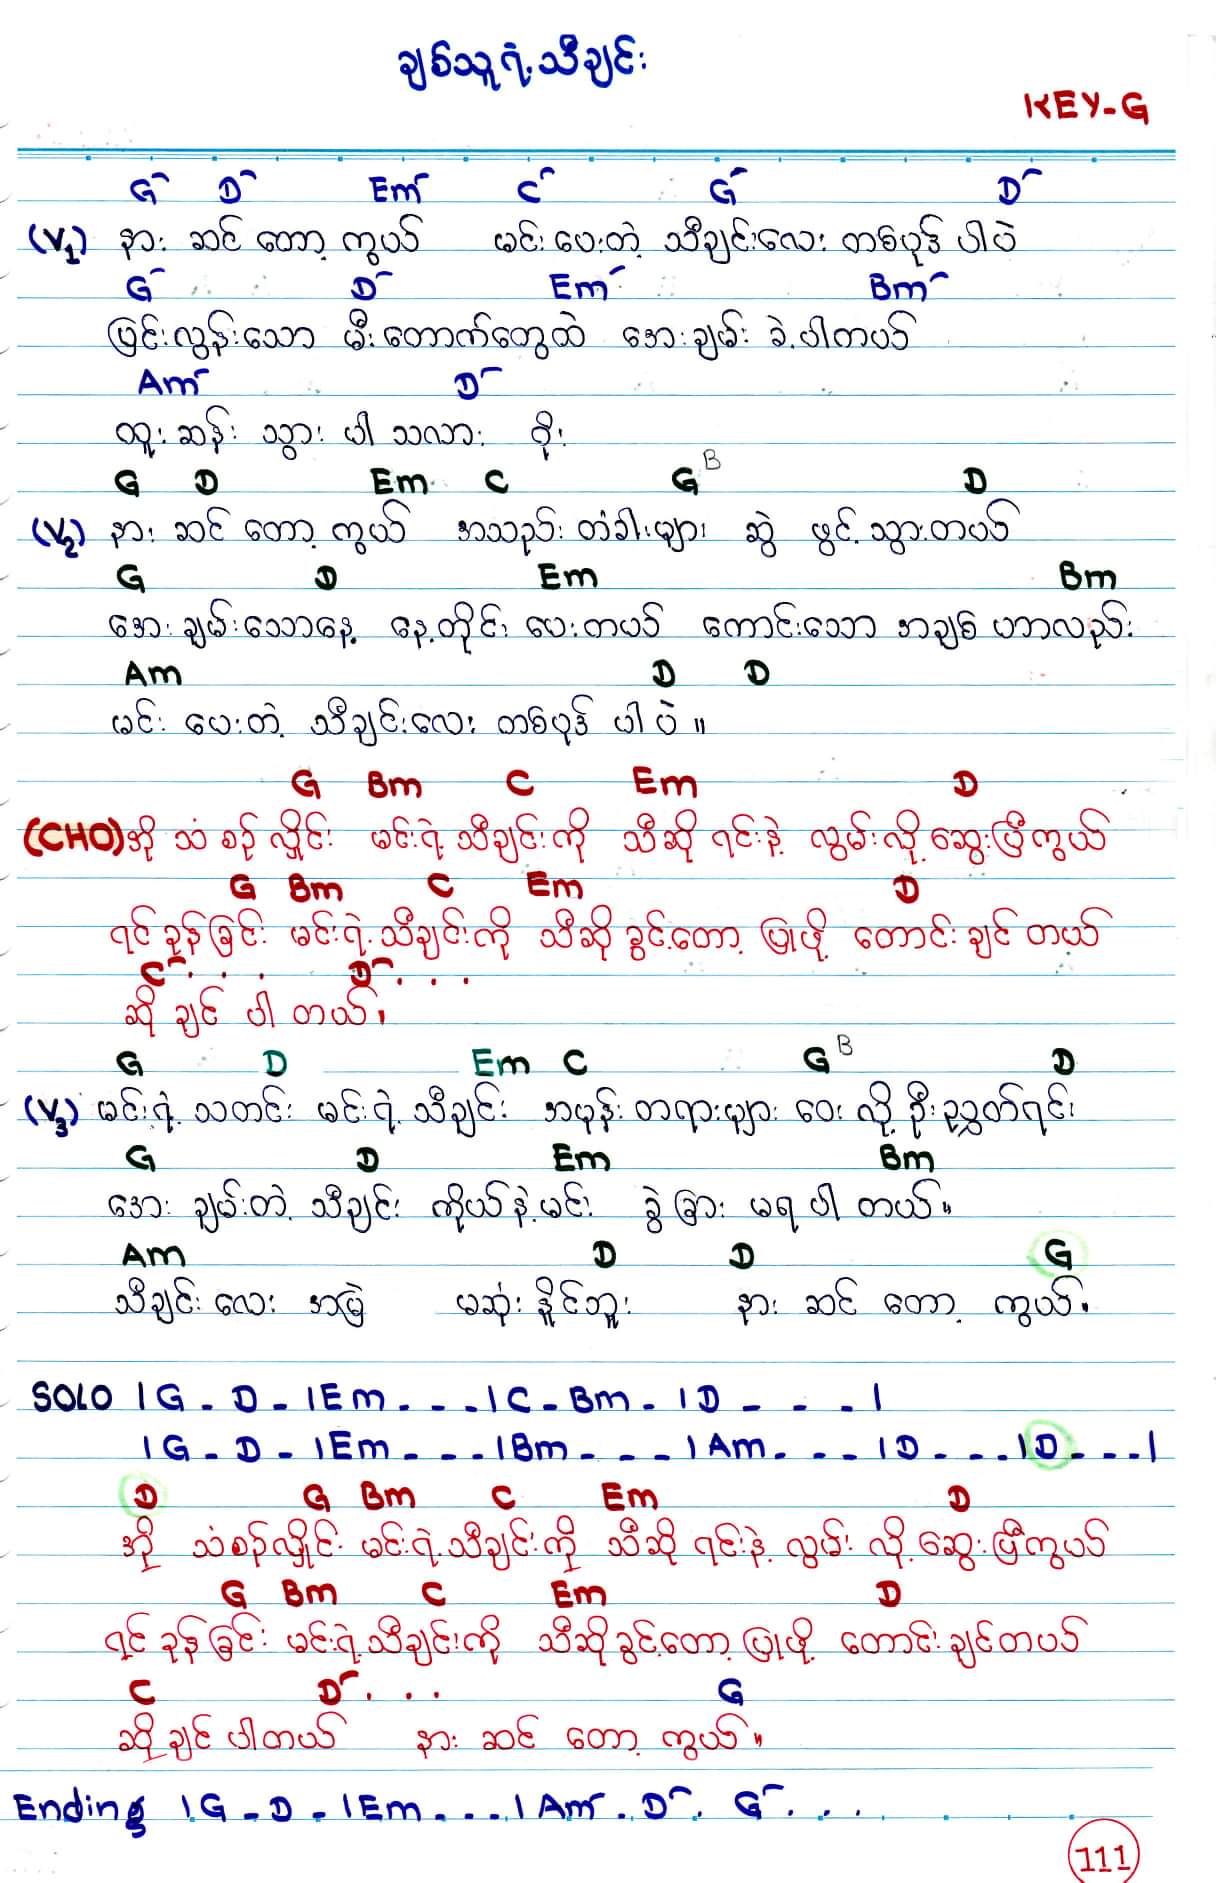 ချစ်သူရဲ့သီချင်း
KEY-G
G D Em C G D
(V1) နား ဆင် တော့ ကွယ် မင်း ပေးတဲ့ သီချင်းလေး တစ်ပုဒ် ပါပဲ
G D Em Bm
ပြင်းလွန်းသော မီးတောက်တွေထဲ အေးချမ်း ခဲ့ပါတယ်
Am D
ထူးဆန်း သွား ပါ သလား ဖိုး
G D Em C G B D
(V2) နား ဆင် တော့ ကွယ် အသည်း တံခါးများ ဆွဲ ဖွင့် သွားတယ်
G D Em Bm
အေးချမ်းသောနေ့ နေ့တိုင်း ပေးတယ် ကောင်းသော အချစ် ဟာလည်း
Am D D
မင်း ပေးတဲ့ သီချင်းလေး တစ်ပုဒ် ပါ ပဲ ။
G Bm C Em D
(CHO) အို သံ စဉ် လှိုင်း မင်းရဲ့ သီချင်းကို သီဆို ရင်းနဲ့ လွမ်းလို့ ဆွေးပြီကွယ်
G Bm C Em D
ရင် ခုန် ခြင်း မင်းရဲ့ သီချင်းကို သီဆို ခွင့်တော့ ပြုဖို့ တောင်း ချင် တယ်
C . . . D . . .
ဆို ချင် ပါ တယ်၊
G D Em C G B D
(V3) မင်းရဲ့ သတင်း မင်းရဲ့ သီချင်း အမုန်း တရားများ ဝေး လို့ ဦးညွှတ်ရင်း
G D Em Bm
အေး ချမ်းတဲ့ သီချင်း ကိုယ်နဲ့မင်း ခွဲ ခြား မရ ပါ တယ်။
Am D D G
သီချင်း လေး အမြဲ မဆုံး နိူင်ဘူး နား ဆင် တော့ ကွယ်၊
SOLO |G - D - |Em - - - |C - Bm - |D - - - |
|G - D - |Em - - - |Bm - - - |Am - - - |D - - - |D - - - |
D G Bm C Em D
အို သံစဉ်လှိုင်း မင်းရဲ့သီချင်းကို သီဆို ရင်းနဲ့ လွမ်း လို့ ဆွေးပြီကွယ်
G Bm C Em D
ရင် ခုန်ခြင်း မင်းရဲ့သီချင်းကို သီဆိုခွင့်တော့ ပြုဖို့ တောင်းချင်တယ်
C D . . . G
ဆိုချင် ပါတယ် နား ဆင် တော့ ကွယ်။
Ending |G - D - |Em - - - |Am - D - G . . .
111